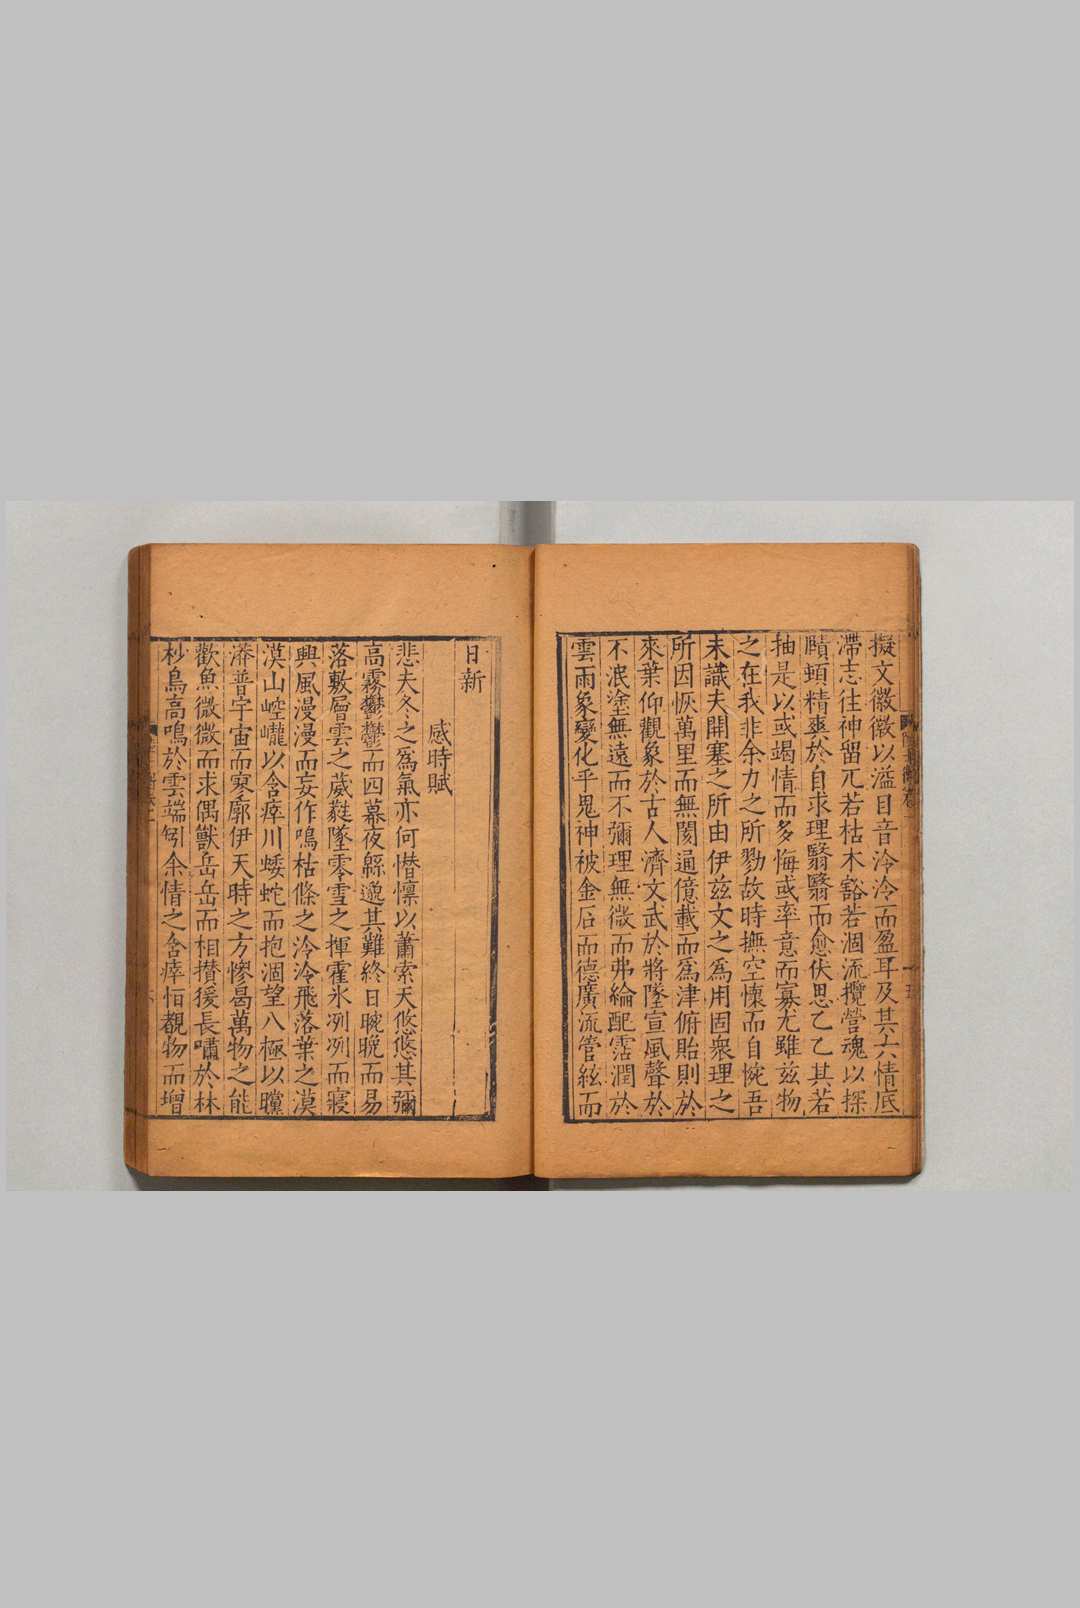 擬文徽徽以溢目音泠泠而盈耳及其六情底
滯志往神留兀若枯木豁若涸流攬營魂以探
賾頓精爽於自求理翳翳而愈伏思乙乙其若
抽是以或竭情而多悔或率意而寡尤雖茲物
之在我非余力之所勠故時撫空懷而自惋吾
未識夫開塞之所由伊茲文之爲用固衆理之
所因恢萬里而無閡通億載而爲津俯貽則於
來葉仰觀象於古人濟文武於將墜宣風聲於
不泯塗無遠而不彌理無微而弗綸配霑潤於
雲雨象變化乎鬼神被金石而德廣流管絃而
日新
感時賦
悲夫冬之爲氣亦何憯懍以蕭索天悠悠其彌
高霧鬱鬱而四幕夜緜邈其難終日晼晚而易
落敷層雲之葳蕤墜零雪之揮霍氷冽冽而寢
興風漫漫而妄作鳴枯條之泠泠飛落葉之漠
漠山崆巄以含瘁川蜲蛇而抱涸望八極以曭
漭普宇宙而寥廓伊天時之方慘曷萬物之能
歡魚微微而求偶獸岳岳而相攢猨長嘯於林
杪鳥高鳴於雲端矧余情之含瘁怛覩物而增